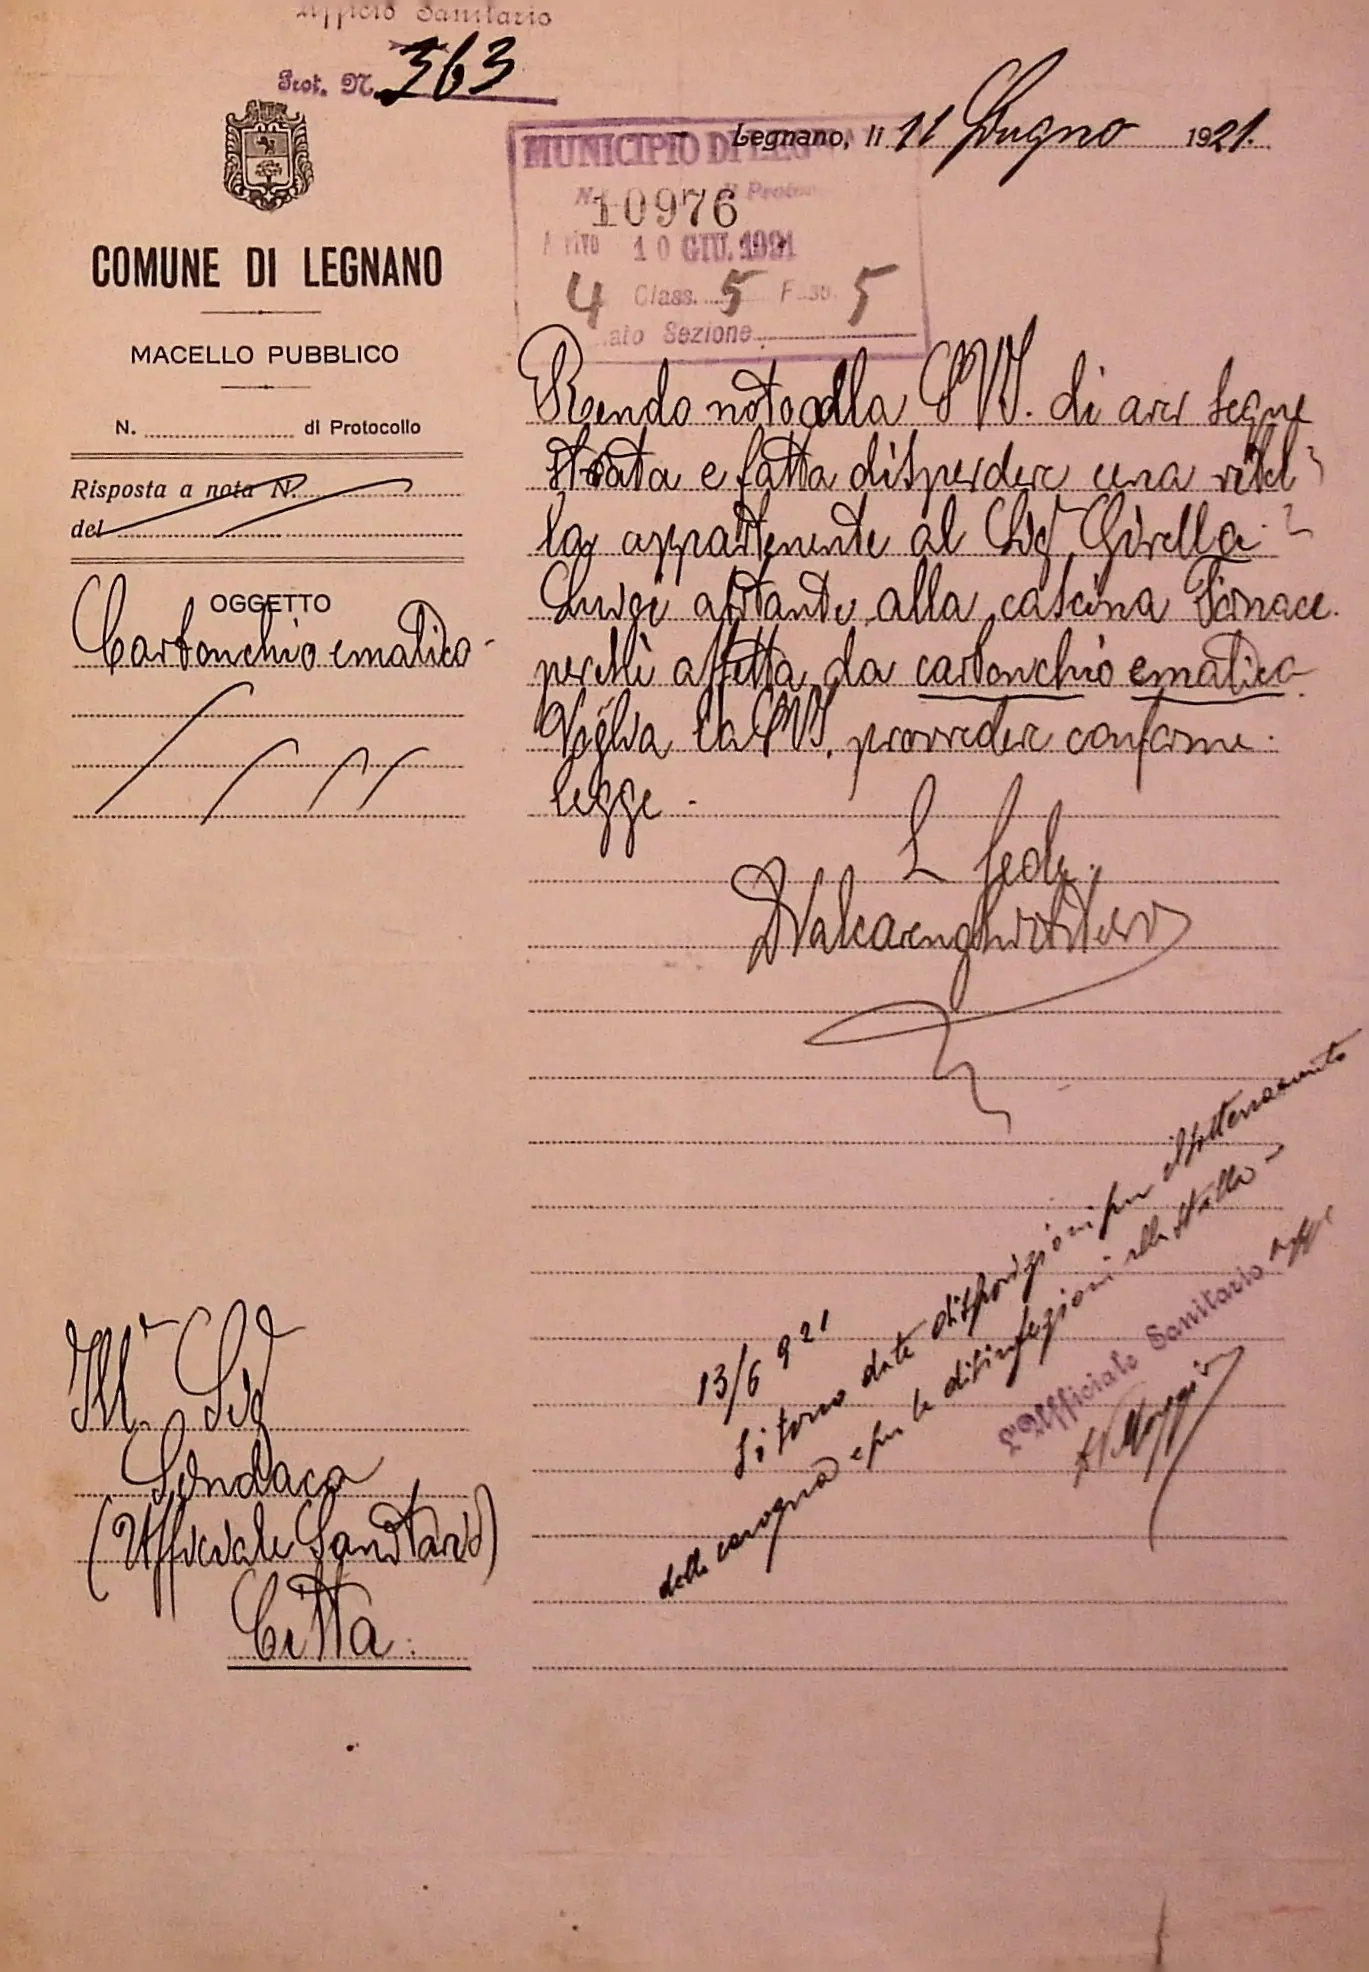 Ufficio Sanitario
Prot. N. 363
COMUNE DI LEGNANO
MACELLO PUBBLICO
N. di Protocollo
Risposta a nota N.
del
OGGETTO
Carbonchio ematico
Legnano, li 11 Giugno 1921.
MUNICIPIO DI LEGN
N. 10976 di Protoc
Arrivo 10 GIU. 1921
4 Class. 5 Fasc. 5
ato Sezione
Rendo noto alla S.V.I. di aver seque
strata e fatta disperdere una vitel
la appartenente al Sig.r Girella
Luigi abitante alla cascina Fornace
perchè affetta da carbonchio ematico
Voglia la S.V.I. provvedere conforme
legge.
In fede.
13/6 921
Si sono date disposizioni per il sotterramento
della carogna e per le disinfezioni alla stalla -
L'Ufficiale Sanitario
Ill. Sig
Sindaco
(Ufficiale Sanitario)
Città.